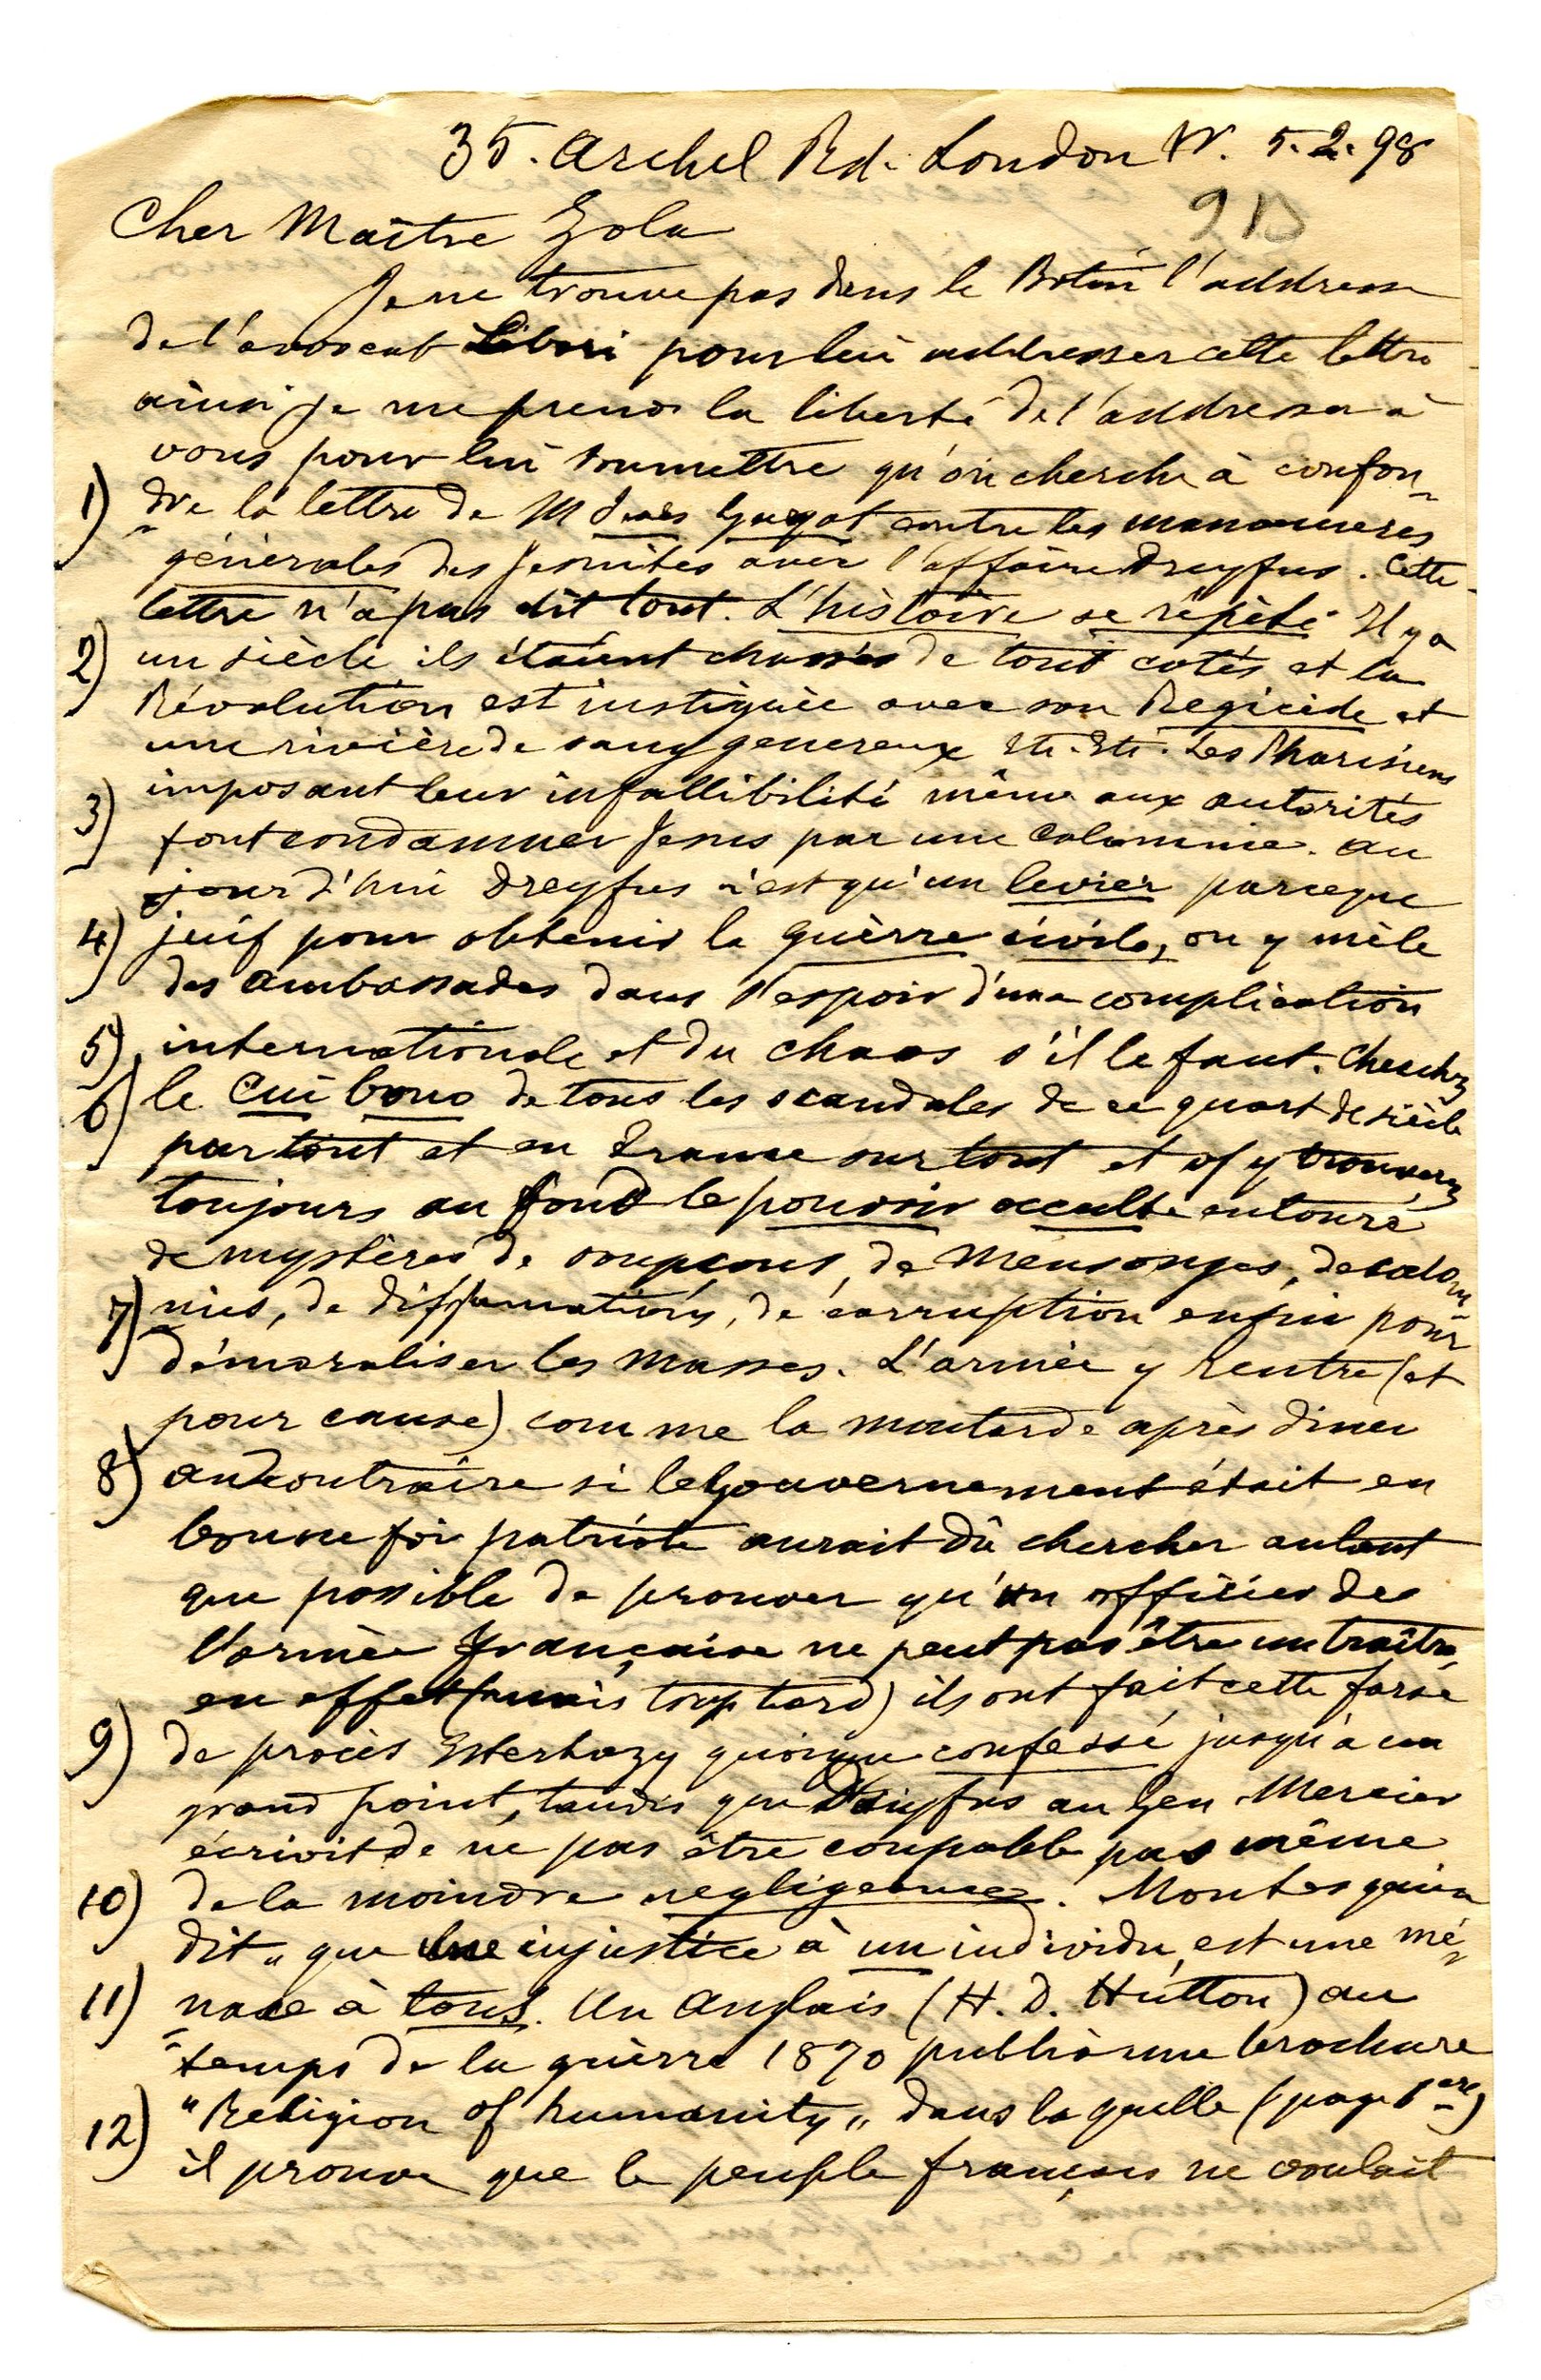 35. Archel Rd. London W. 5.2.98
9 B
Cher Maître Zola
Je ne trouve pas dans le Botin l'addresse
de l'avocat Labori pour lui addresser cette lettre
ainsi je me prends la liberté de l'addresser à
vous pour lui soumettre qu'on cherche à confon-
1) dre la lettre de M Ives Guyot contre les manouvres
générales des Jesuites avec l'affaire Dreyfus. Cette
lettre n'a pas dit tout. L'histoire se répète. Il y a
2) un siècle ils étaient chassés de tout cotés et la
Révolution est instiguée avec son Regicide et
une rivière de sang genereux etc. etc. Les Pharisiens
3) imposant leur infallibilité même aux autorités
font condamner Jesus par une calomnie. Au
jour d'hui Dreyfus n'est qu'un levier parceque
4) juif pour obtenir la guèrre civile, on y mèle
des ambassades dans l'espoir d'une complication
5) internationale et du chaos s'il le faut. Cherchez
6) le Cui bono de tous les scandales de ce quart de siècle
partout et en France surtout et y trouverez
toujours au fond le pouvoir occulte entouré
de mystères de soupçons, de mensonges, de calom-
7) nies, de diffamations, de corruption enfin pour
démoraliser les masses. L'armée y rentre (et
pour cause) comme la moutarde après diner
8) au contraire si le Gouvernement était en
bonne foi patriote aurait dû chercher autant
que possible de prouver qu'un officier de
l'armée française ne peut pas être un traître,
en effet (mais trop tard) ils ont fait cette farse
9) de procès Esterhazy quoique confessé jusqu'à un
grand point, tandis que Dreyfus au Gen. Mercier
écrivit de ne pas être coupable pas même
10) de la moindre negligence. Montesquieu
dit „ que une injustice à un individu, est une mé-
11) nace à tous. Un Anglais (H. D. Hutton) au
temps de la guèrre 1870 publia une brochure
12) "Religion of humanity„ dans la quelle (page 1ere)
il prouve que le peuple français ne voulait